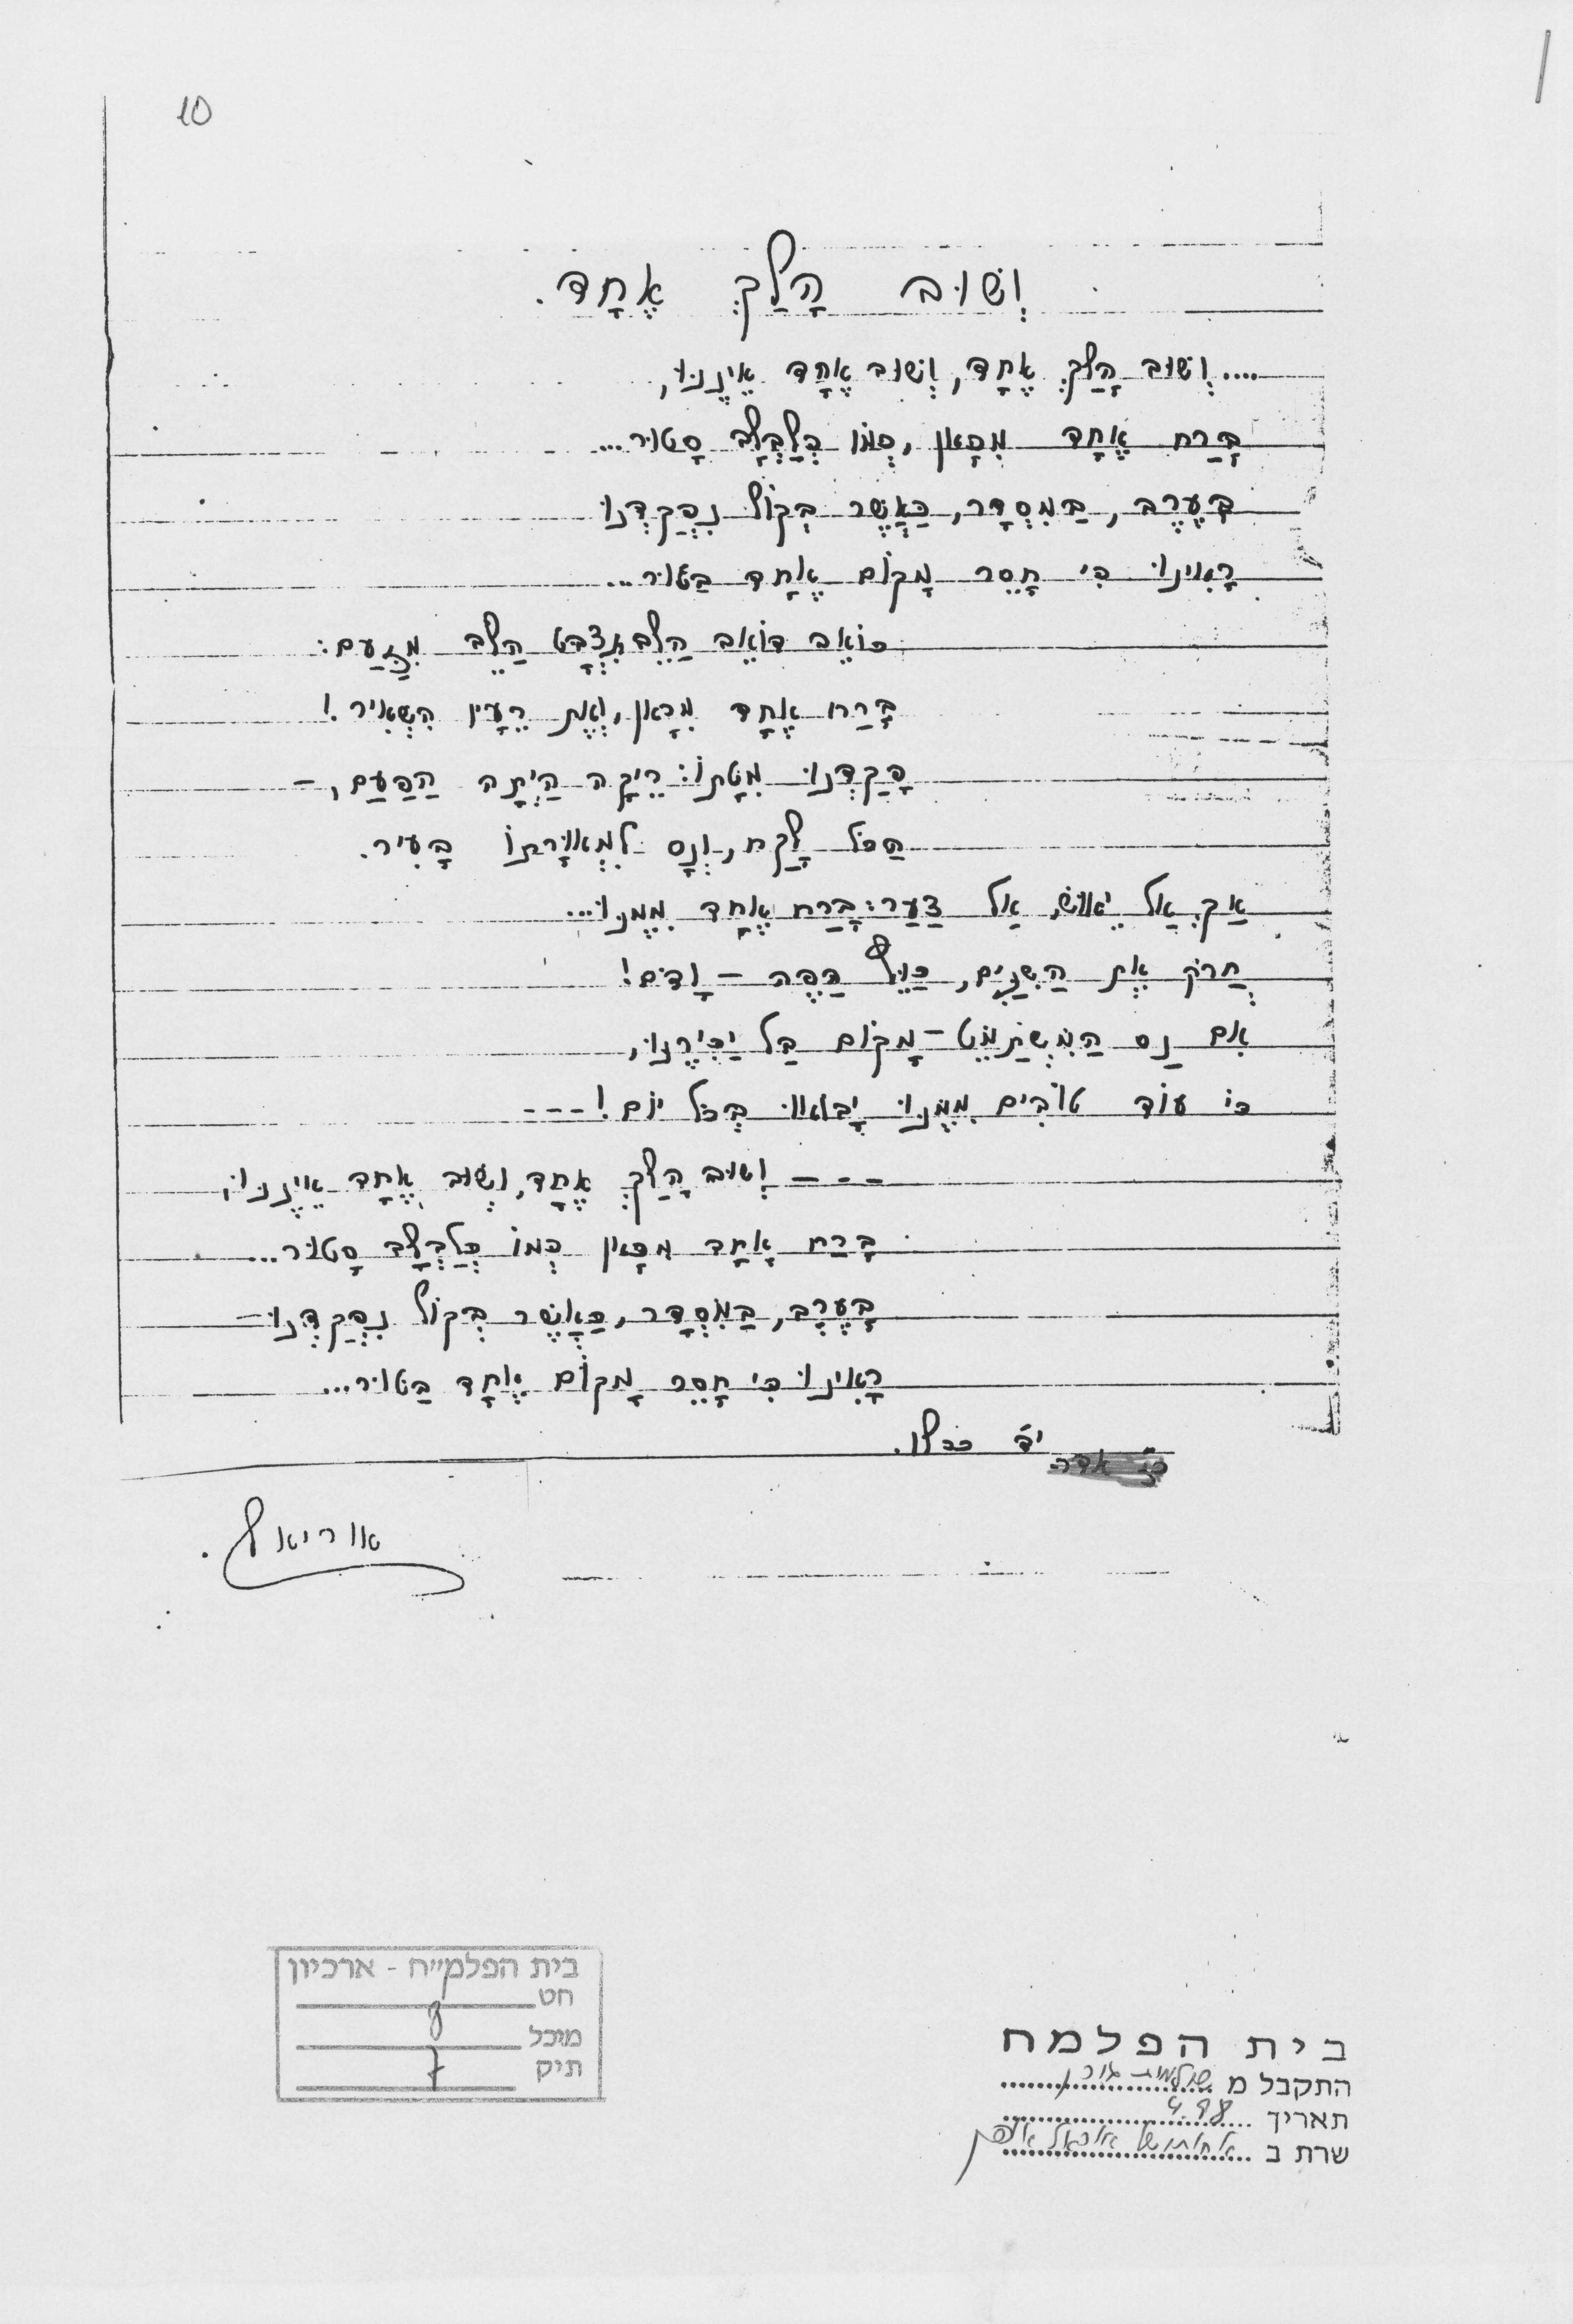 10
וְשׁוּב הָלַךְ אֶחָד.
....וְשׁוּב הָלַךְ אֶחָד, וְשׁוּב אֶחָד אֵינֶנּוּ,
בָּרַח אֶחָד מִכָּאן, כְּמוֹ כְּלַבְלָב סָטוּר...
בָּעֶרֶב, בַּמִסְדָר, כַּאֲשֶׁר בְּקוֹל נִפְקַדְנוּ
רָאִינוּ כִּי חָסֵר מָקוֹם אֶחָד בַּטוּר...
כּוֹאֵב דוֹאֵב הַלֵב תִצָבֵט הַלֵב מִזַעַם:
בָּרַח אֶחָד מִכָּאן, וְאֶת רֵעָיו הִשְׁאִיר!
פָּקַדְנוּ מִטָתוֹ: רֵיקָה הָיְתָה הַפַּעַם, –
הַכֹּל לָקַח, וְנָס לִמְאוּרָתוֹ בָּעִיר.
אַךְ אַל יֵאוּשׁ, אַל צַעַר: בָּרַח אֶחָד מִמֶנּוּ...
חֲרֹק אֶת הַשִׁנַיִם, הַפֶּה – וָדֹם!
אִם נָס הַמִשְׁתַמֵט – מָקוֹם בַּל יַכִּירֶנּוּ,
כִּי עוֹד טוֹבִים מִמֶנּוּ יָבוֹאוּ בְּכָל יוֹם! ---
--- וְשׁוּב הָלַךְ אֶחָד, וְשׁוּב אֶחָד אֵינֶנּוּ,
בָּרַח אֶחָד מִכָּאן כְּמוֹ כְּלַבְלָב סָטוּר...
בָּעֶרֶב, בַּמִסְדָר, כַּאֲשֶׁר בְּקוֹל נִפְקַדְנוּ –
רָאִינוּ כִּי חָסֵר מָקוֹם אֶחָד בַּטוּר...
י"ד כסלו.
אוריאל.
בית הפלמ"ח - ארכיון
חט
מוכל 8
תיק 7
בית הפלמח
התקבל מ שולמית
תאריך 4.98
שרת ב אחותו של אוריאל